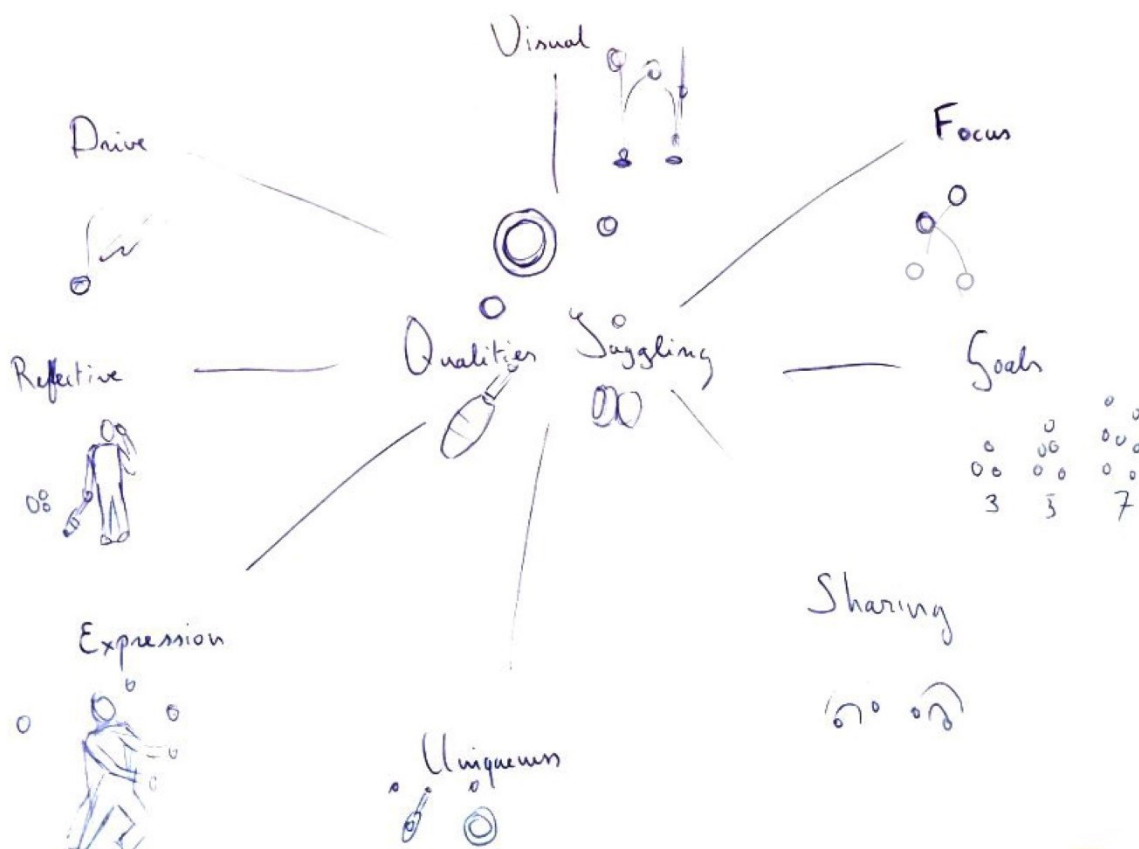 Visual
Drive
Focus
Qualities Juggling
Reflective
Goals
3 5 7
Sharing
Expression
Uniqueness